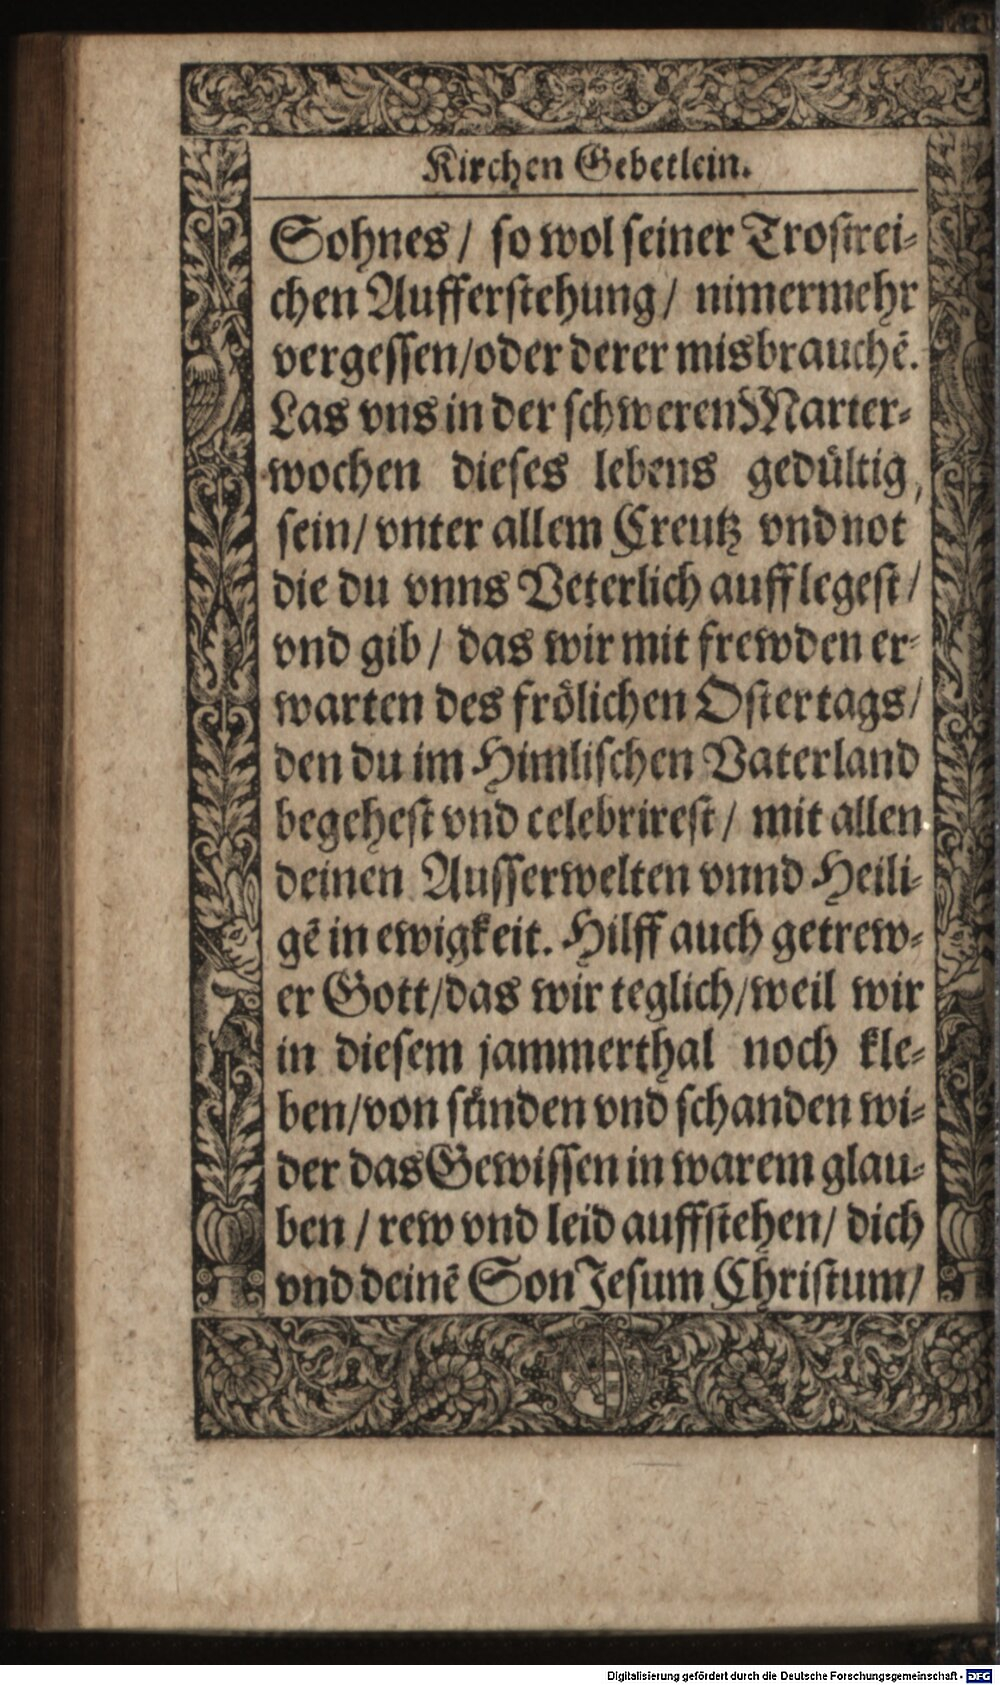 Kirchen Gebetlein.
Sohnes / so wol seiner Trostrei-
chen Aufferstehung / nimermehr
vergessen/oder derer misbrauchẽ.
Las vns in der schweren Marter-
wochen dieses lebens gedültig,
sein/ vnter allem Creutz vnd not
die du vnns Veterlich aufflegest/
vnd gib / das wir mit frewden er-
warten des frölichen Ostertags/
den du im Himlischen Vaterland
begehest vnd celebrirest / mit allen
deinen Ausserwelten vnnd Heili-
gẽ in ewigkeit. Hilff auch getrew-
er Gott/das wir teglich/weil wir
in diesem jammerthal noch kle-
ben/von sünden vnd schanden wi-
der das Gewissen in warem glau-
ben / rew vnd leid auffstehen/ dich
vnd deinẽ Son Jesum Christum/
Digitalisierung gefördert durch die Deutsche Forschungsgemeinschaft - DFG